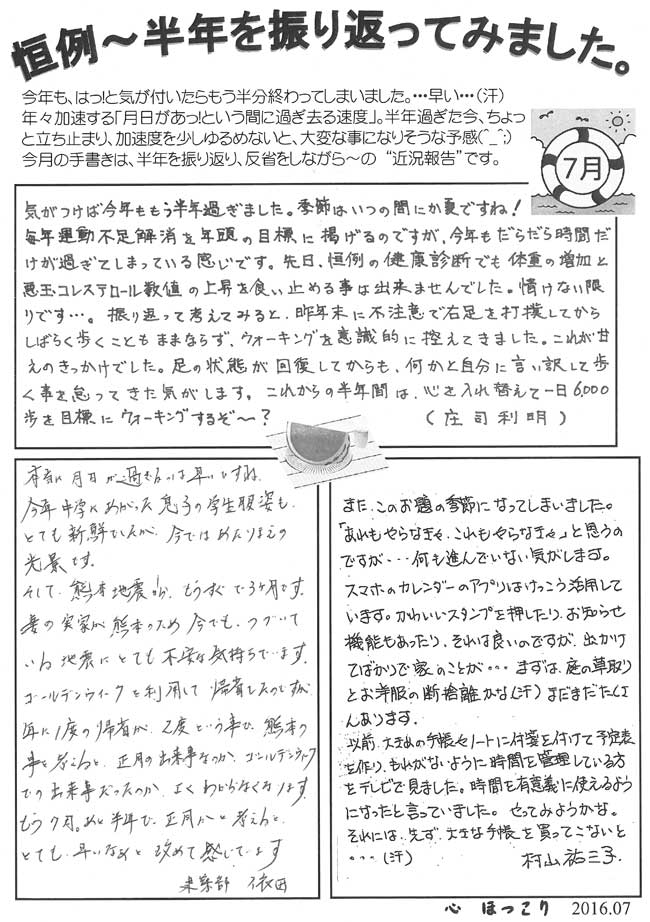 恒例～半年を振り返ってみました。
今年も、はっ!と気が付いたらもう半分終わってしまいました。…早い…(汗)
年々加速する「月日があっ!という間に過ぎ去る速度」。半年過ぎた今、ちょっ
と立ち止まり、加速度を少しゆるめないと、大変な事になりそうな予感(^_^;)
今月の手書きは、半年を振り返り、反省をしながら～の “近況報告”です。
7月
気がつけば今年ももう半年過ぎました。季節はいつの間にか夏ですね!
毎年運動不足解消を年頭の目標に掲げるのですが、今年もだらだら時間だ
けが過ぎてしまっている感じです。先日、恒例の健康診断でも体重の増加と
悪玉コレステロール数値の上昇を食い止める事は出来ませんでした。情けない限
りです…。振り返って考えてみると、昨年末に不注意で右足を打撲してから
しばらく歩くこともままならず、ウォーキングを意識的に控えてきました。これが甘
えのきっかけでした。足の状態が回復してからも、何かと自分に言い訳して歩
く事を怠ってきた気がします。これからの半年間は、心を入れ替えて一日6,000
歩を目標にウォーキングするぞ～? (庄司利明)
本当に月日が過ぎるのは早いですね。
今年中学にあがった息子の学生服姿も、
とても新鮮でしたが、今ではあたりまえの
光景です。
そして、熊本地震から、もうすぐで3ヶ月です。
妻の実家が熊本のため今でも、つづいて
いる地震にとても不安な気持ちでいます。
ゴールデンウィークを利用して帰省したのですが、
年に1度の帰省が、2度という事で、熊本の
事を考えると、正月の出来事なのか、ゴールデンウィーク
での出来事だったのか、よくわからなくなります。
もう7月。あと半年で、正月かと考えると、
とても早いなぁと改めて感じています
営業部 依田
また、このお題の季節になってしまいました。
「あれもやらなきゃ、これもやらなきゃ」と思うの
ですが…何も進んでいない気がします。
スマホのカレンダーのアプリはけっこう活用して
います。かわいいスタンプを押したり、お知らせ
機能もあったり、それは良いのですが、出かけ
てばかりで家のことが… まずは、庭の草取り
とお洋服の断捨離かな(汗)まだまだたくさ
んあります。
以前、大きめの手帳やノートに付箋を付けて予定表
を作り、もれがないように時間を管理している方
をテレビで見ました。時間を有意義に使えるよう
になったと言っていました。やってみようかな。
それには、先ず、大きな手帳を買ってこないと
…(汗) 村山祐三子
心 ほっこり 2016.07